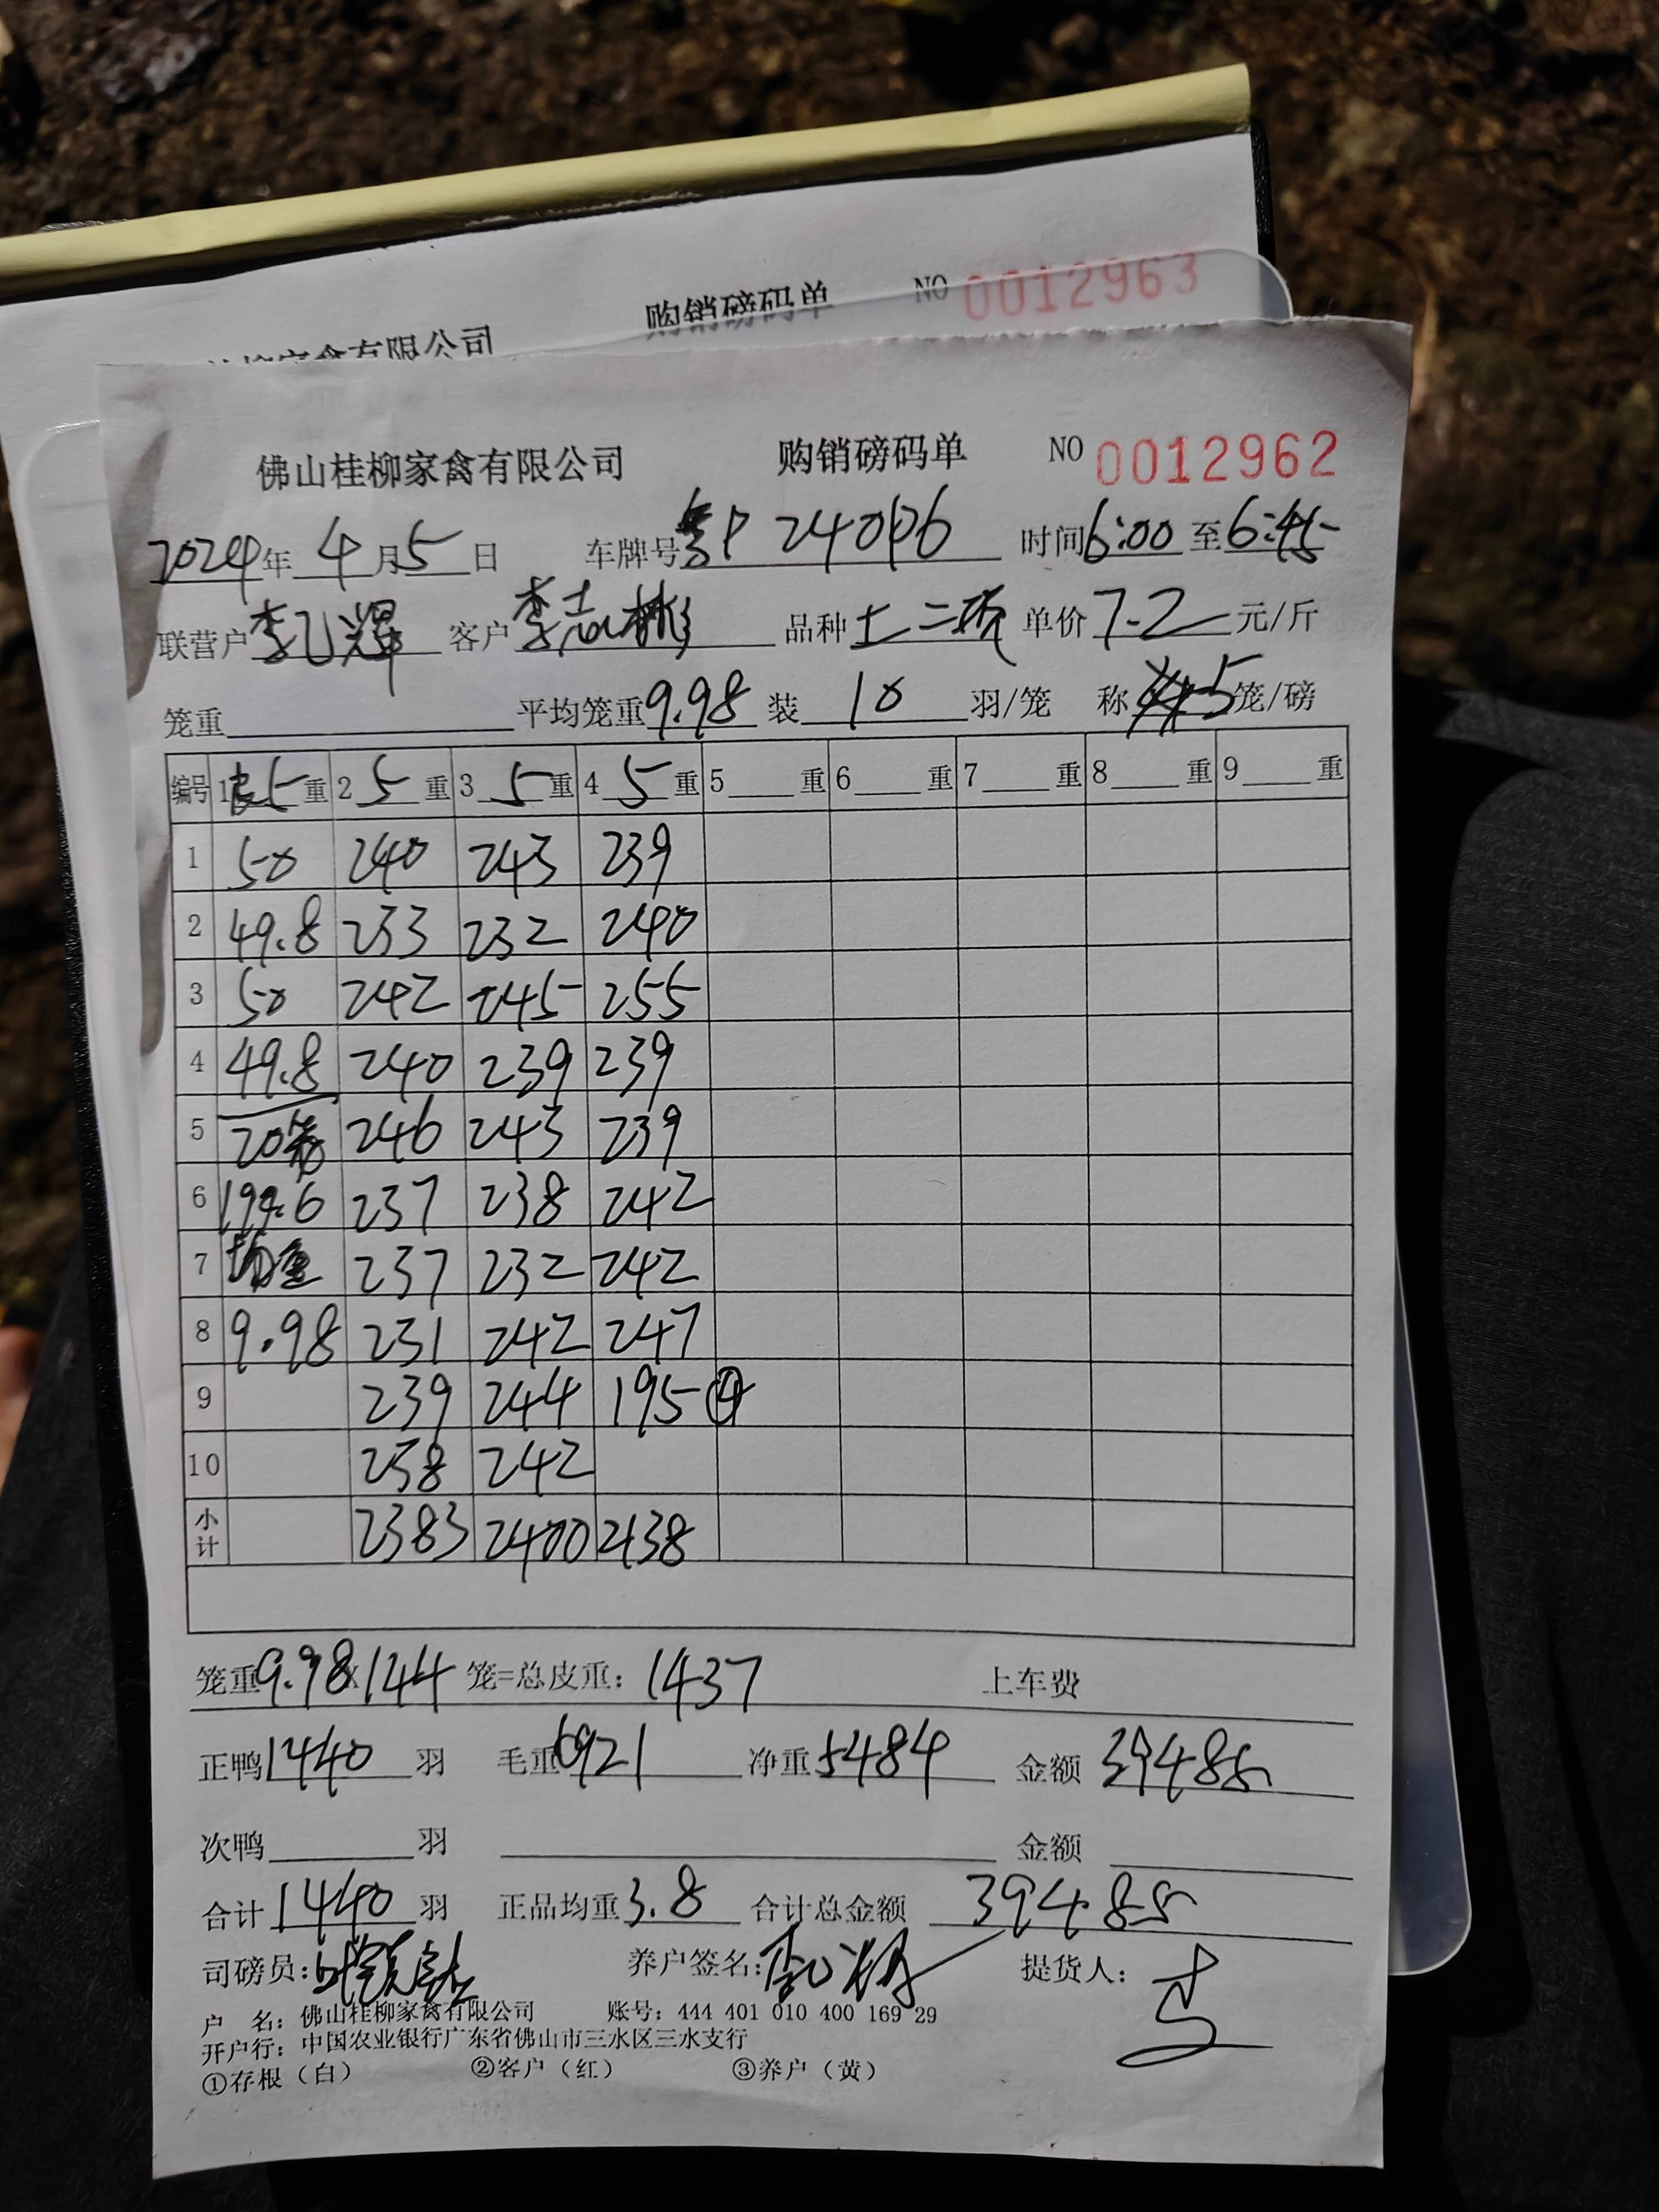 购销磅码单 NO 0012963
家禽有限公司
佛山桂柳家禽有限公司 购销磅码单 NO 0012962
2024年 4月5日 车牌号 粤P 240P6 时间6:00 至6:45
联营户 李 辉 客户 李志彬 品种 土二 单价 7.2 元/斤
笼重 平均笼重 9.98 装 10 羽/笼 称 5 笼/磅
编号 1 5 重 2 5 重 3 5 重 4 5 重 5 重 6 重 7 重 8 重 9 重
1 50 240 243 239
2 49.8 233 232 240
3 50 242 245 255
4 49.8 240 239 239
5 20笼 246 243 239
6 199.6 237 238 242
7 均重 237 232 242
8 9.98 231 242 247
9 239 244 195 ④
10 238 242
小计 2383 2400 2138
笼重9.98×144 笼=总皮重: 1437 上车费
正鸭1440 羽 毛重6921 净重5484 金额 39485
次鸭 羽 金额
合计1440 羽 正品均重3.8 合计总金额 39485
司磅员: 养户签名: 提货人:
户 名: 佛山桂柳家禽有限公司 账号: 444 401 010 400 169 29
开户行: 中国农业银行广东省佛山市三水区三水支行
①存根(白) ②客户(红) ③养户(黄)